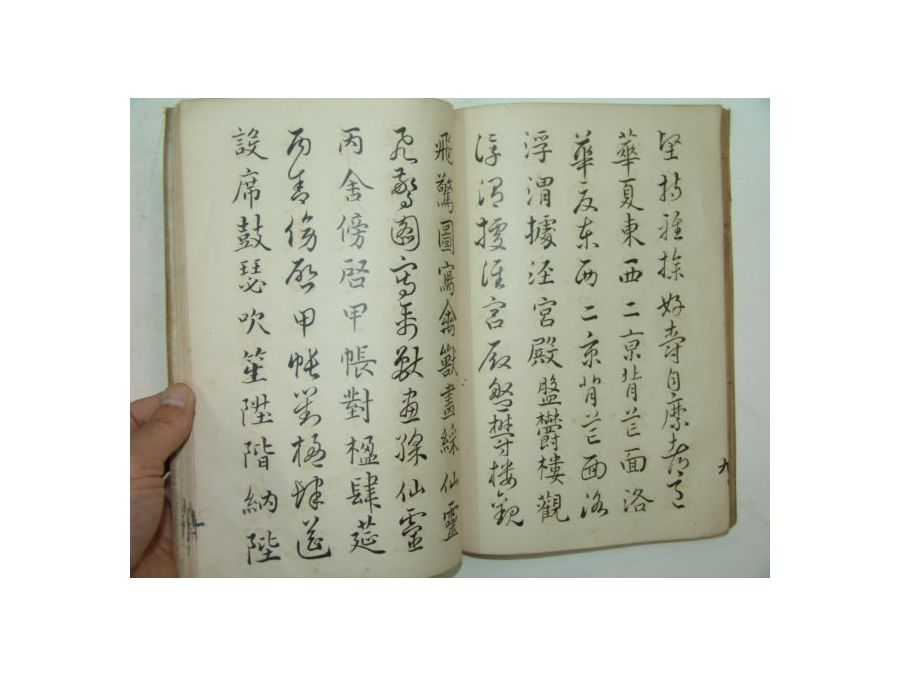 堅持雅操好爵自縻都邑
華夏東西二京背芒面洛
華夏東西二京背芒面洛
浮渭據涇宮殿盤鬱樓觀
浮渭據涇宮殿盤鬱樓觀
飛驚圖寫禽獸畫綵仙靈
飛驚圖寫禽獸畫綵仙靈
丙舍傍啓甲帳對楹肆莚
丙舍傍啓甲帳對楹肆莚
設席鼓瑟吹笙陞階納陛
九